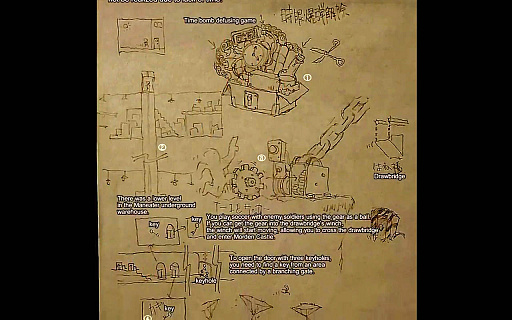 Time bomb defusing game
時限爆弾解除
①
②
③
Drawbridge
There was a lower level
in the Maneater underground
warehouse.
You play soccer with enemy soldiers using the gear as a ball.
If you can get the gear into the drawbridge's winch,
the winch will start moving, allowing you to cross the drawbridge
and enter Morden Castle.
key
key
To open the door with three keyholes,
you need to find a key from an area
connected by a branching gate.
keyhole
key